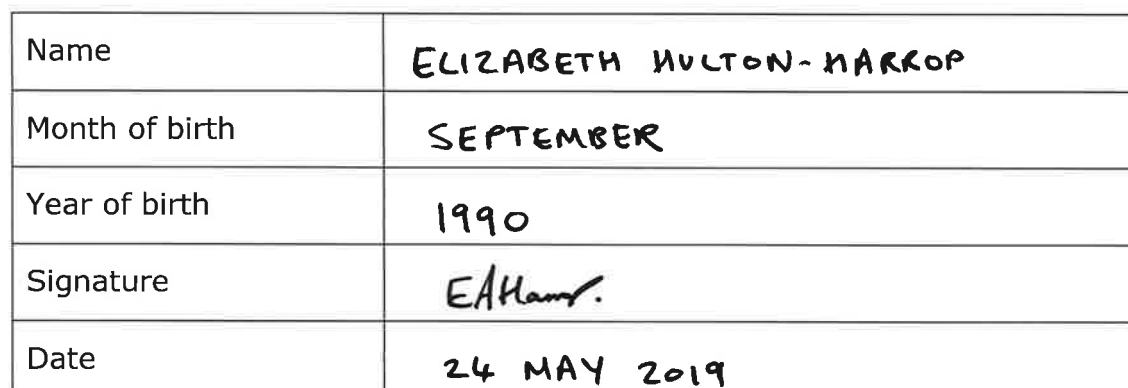 Name ELIZABETH HULTON-HARROP
Month of birth SEPTEMBER
Year of birth 1990
Signature
Date 24 MAY 2019